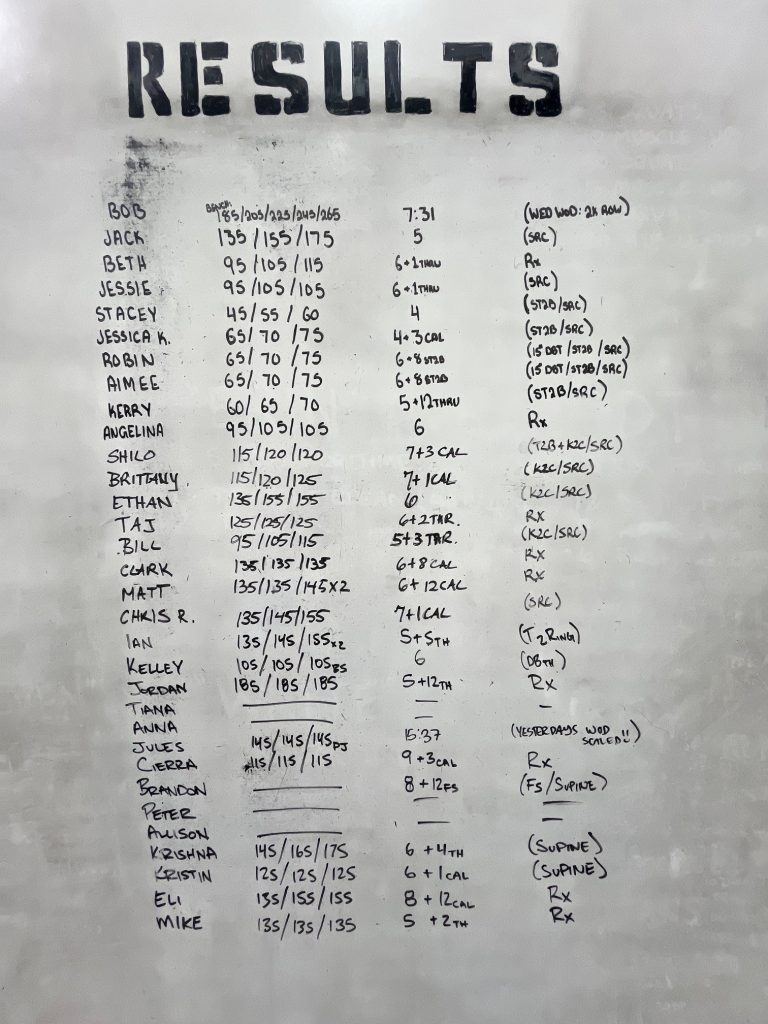 RESULTS
BOB BENCH 185/205/225/245/265 7:31 (WED WOD: 2K ROW)
JACK 135/155/175 5 (SRC)
BETH 95/105/115 6+1THRU Rx
JESSIE 95/105/105 6+1THRU (SRC)
STACEY 45/55/60 4 (ST2B/SRC)
JESSICA K. 65/70/75 4+3 CAL (ST2B/SRC)
ROBIN 65/70/75 6+8 ST2B (15" DBT/ST2B/SRC)
AIMEE 65/70/75 6+8 ST2B (15" DBT/ST2B/SRC)
KERRY 60/65/70 5+12THRU (ST2B/SRC)
ANGELINA 95/105/105 6 Rx
SHILO 115/120/120 7+3 CAL (T2B+K2C/SRC)
BRITTANY. 115/120/125 7+1CAL (K2C/SRC)
ETHAN 135/155/155 6 (K2C/SRC)
TAJ 125/125/125 6+2THR. Rx
BILL 95/105/115 5+3 THR. (K2C/SRC)
CLARK 135/135/135 6+8 CAL Rx
MATT 135/135/145x2 6+12CAL Rx
CHRIS R. 135/145/155 7+1CAL (SRC)
IAN 135/145/155x2 5+5TH (T2RING)
KELLEY 105/105/105BS 6 (DBTH)
JORDAN 185/185/185 5+12TH Rx
TIANA — — —
ANNA — —
JULES 145/145/145PJ 15:37 (YESTERDAYS WOD SCALED!!)
CIERRA 115/115/115 9+3CAL Rx
BRANDON — 8+12FS (FS/SUPINE)
PETER — — —
ALLISON — — —
KRISHNA 145/165/175 6+4TH (SUPINE)
KRISTIN 125/125/125 6+1CAL (SUPINE)
ELI 135/155/155 8+12CAL Rx
MIKE 135/135/135 5+2TH Rx